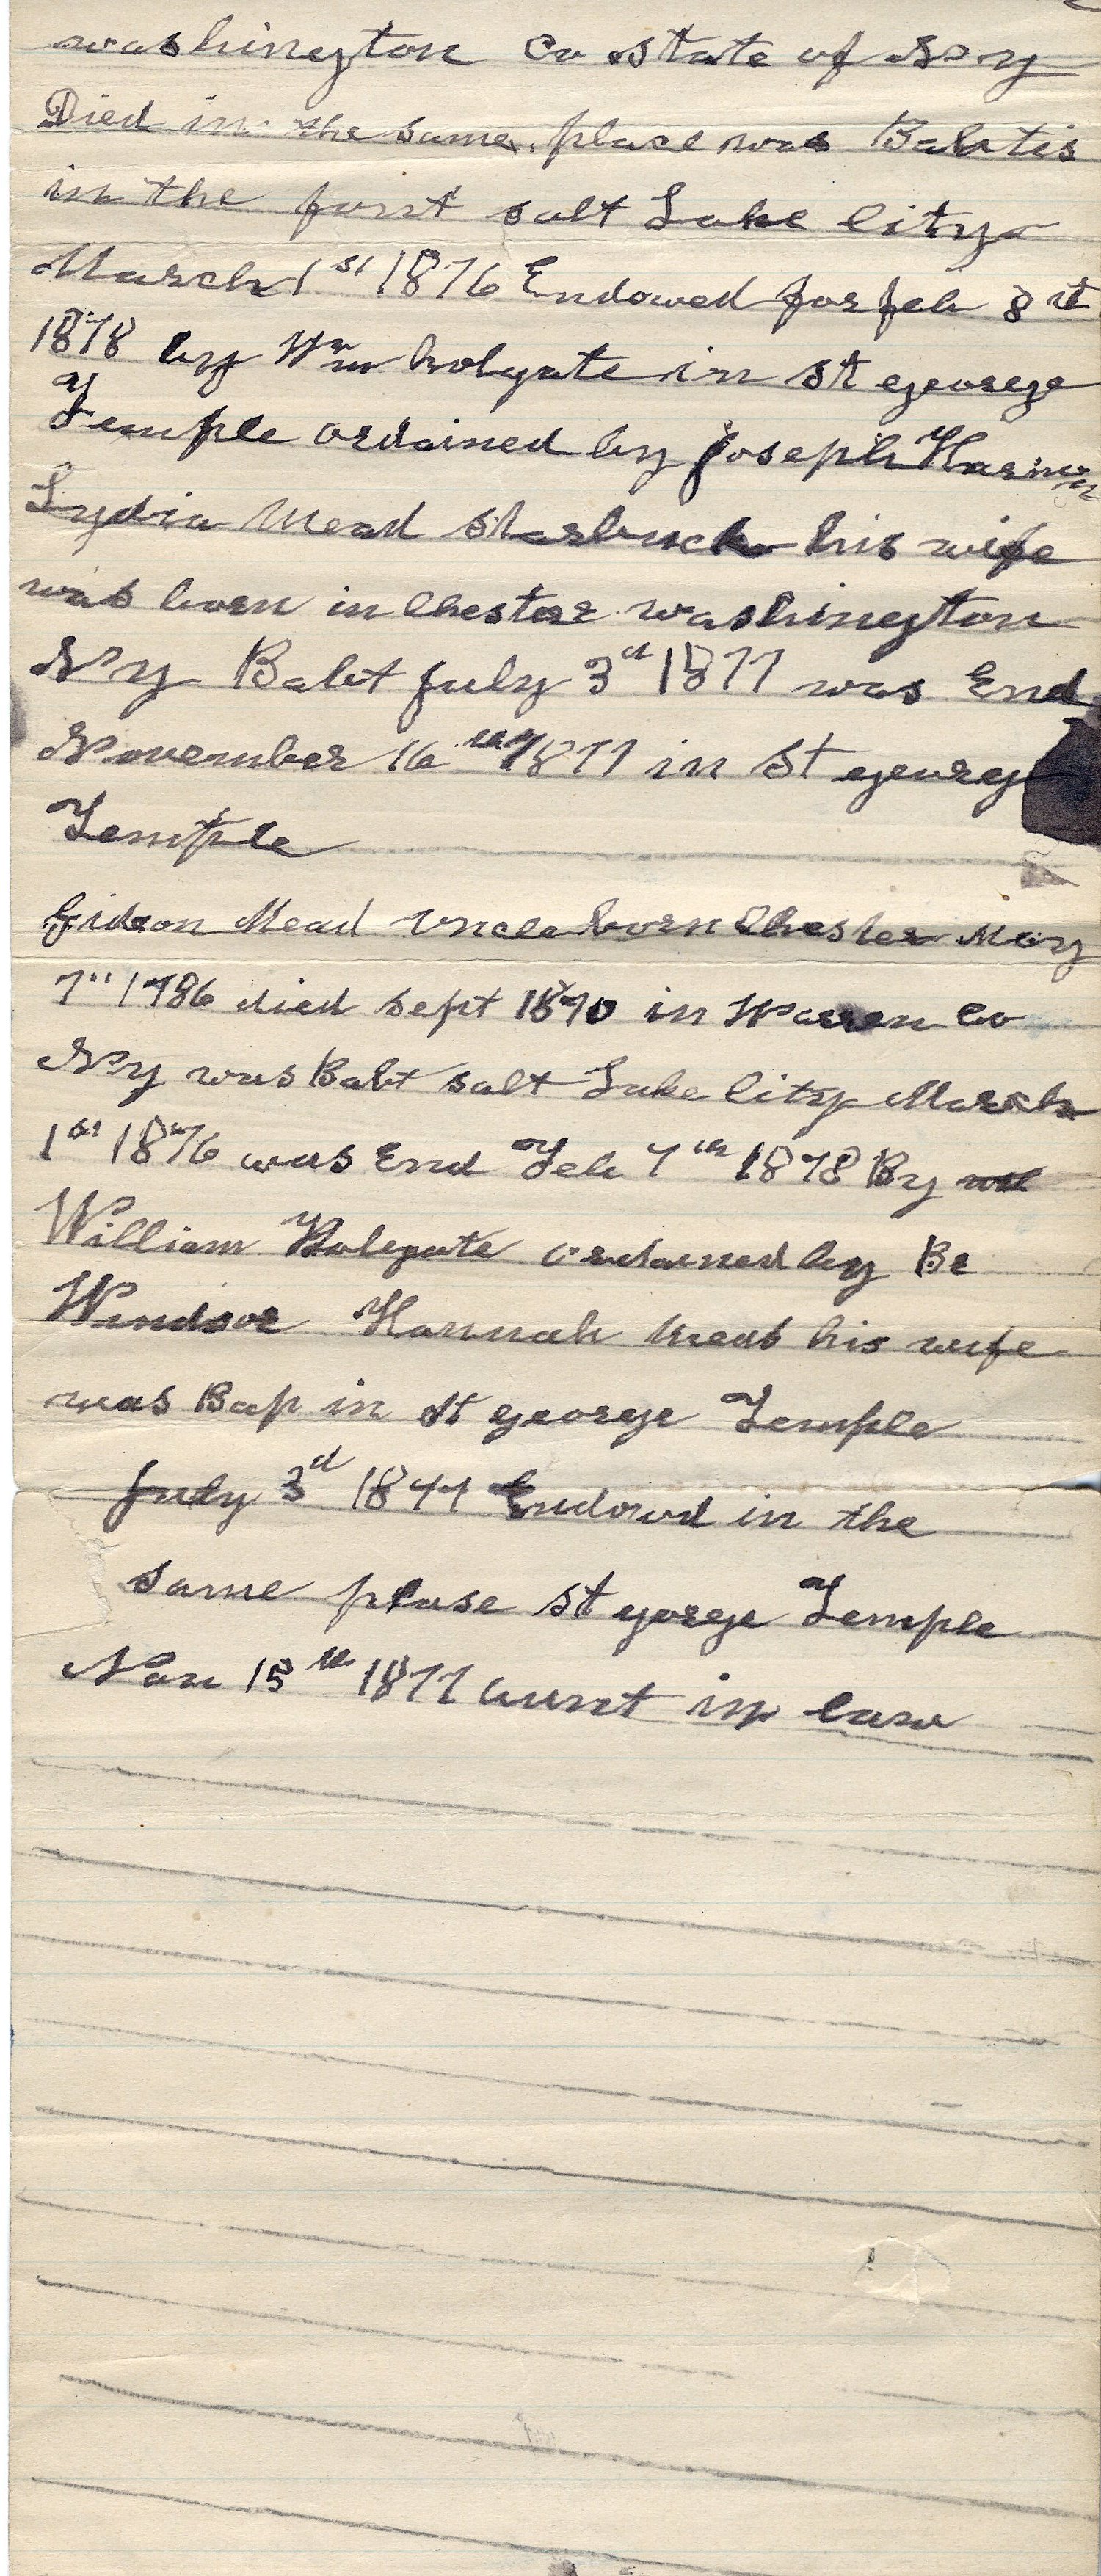 washington Co state of N y
Died in the same place was Babtis
in the font salt Lake City
March 1st 1876 Endowed for feb 8 th
1878 by Wm holgate in st george
Temple ordained by Joseph
Lydia Mead Starbuck his wife
was born in Chester washington
N y Babt July 3d 1877 was End
November 16 th 1877 in St george
Temple
Gideon Mead Uncle born Chester May
7th 1786 died sept 1870 in Warren Co
N y was Babt salt Lake City March
1st 1876 was End Feb 7th 1878 By
William Holegate ordained by Br
Windsor Hannah Mead his wife
was Bap in st george Temple
July 3d 1877 Endowd in the
same plase st gorge Temple
Nov 15th 1877 aunt in law